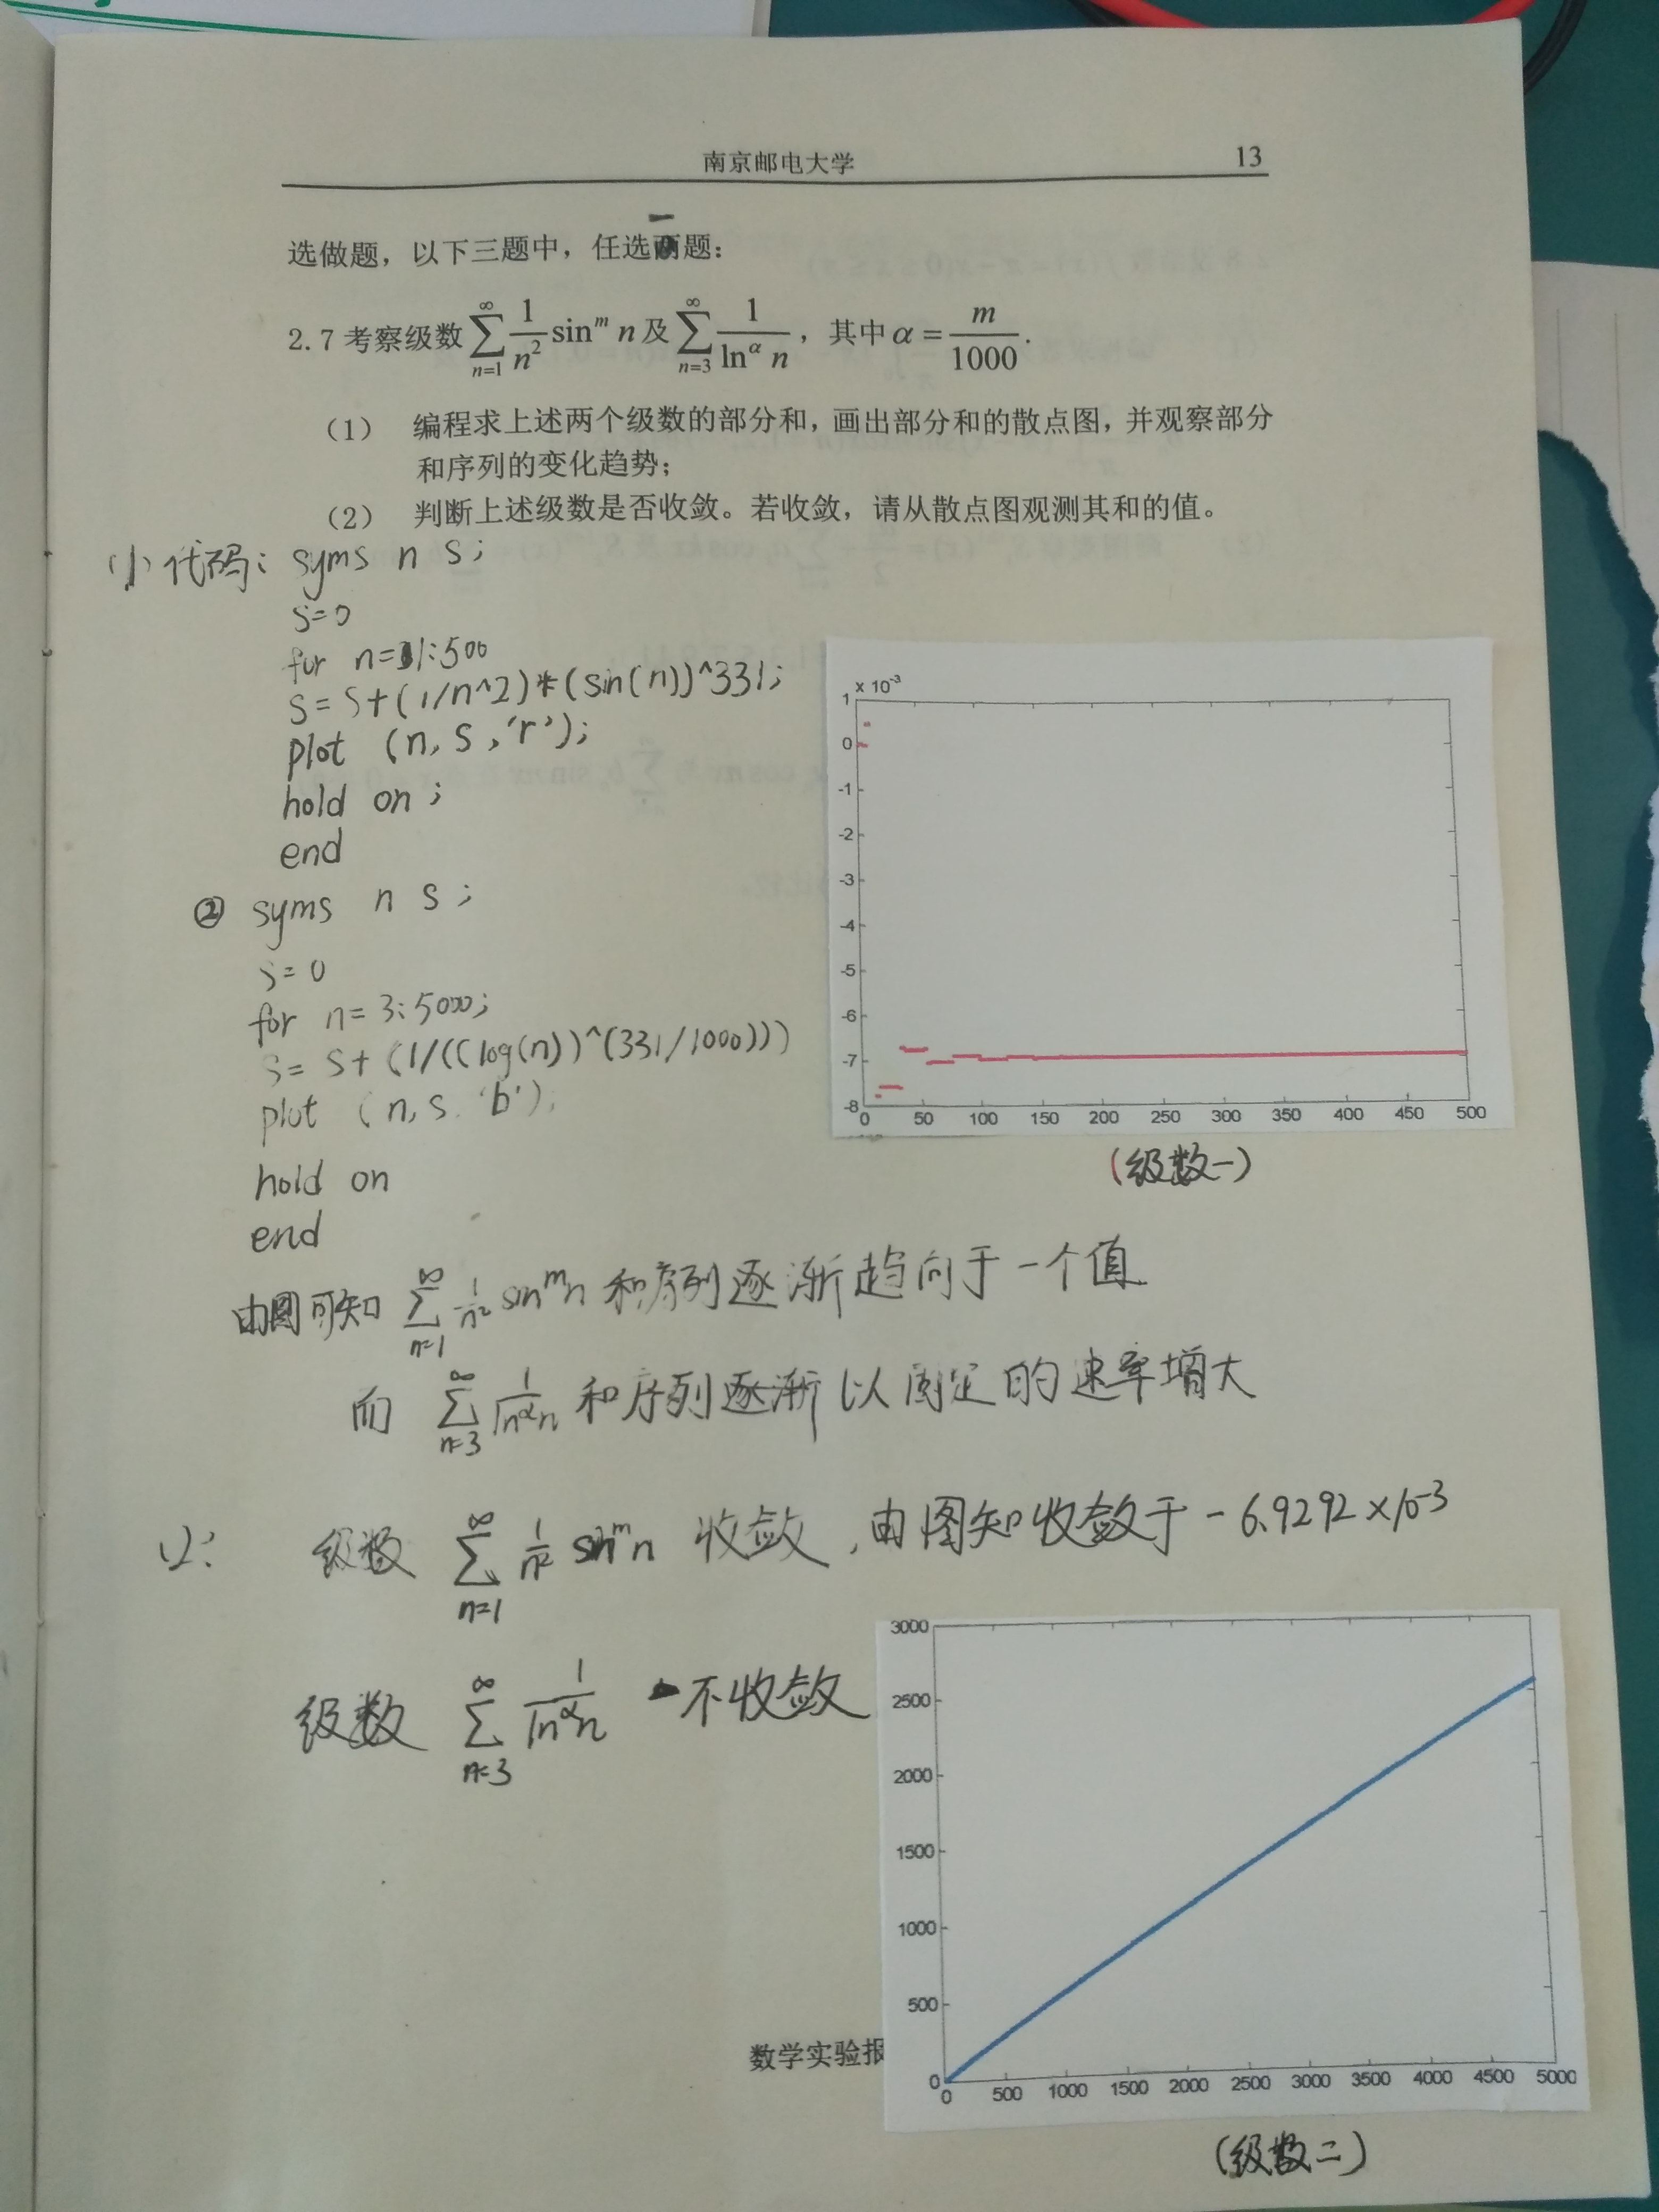 南京邮电大学 13
选做题，以下三题中，任选一题：
2.7 考察级数 ∑_{n=1}^{∞} 1/n² sin^m n 及 ∑_{n=3}^{∞} 1/ln^α n ，其中 α = m/1000 .
（1） 编程求上述两个级数的部分和，画出部分和的散点图，并观察部分
和序列的变化趋势；
（2） 判断上述级数是否收敛。若收敛，请从散点图观测其和的值。
(1) 代码: syms n s;
s=0
for n=1:500
s=s+(1/n^2)*(sin(n))^331;
plot (n,s,'r');
hold on;
end
② syms n s;
s=0
for n=3:5000;
s=s+(1/((log(n))^(331/1000)))
plot (n,s,'b');
hold on
end
x 10⁻³
1
0
-1
-2
-3
-4
-5
-6
-7
-8
0 50 100 150 200 250 300 350 400 450 500
(级数一)
由图可知 ∑_{n=1}^{∞} 1/n² sin^m n 和序列逐渐趋向于一个值
而 ∑_{n=3}^{∞} 1/ln^α n 和序列逐渐以固定的速率增大
(2): 级数 ∑_{n=1}^{∞} 1/n² sin^m n 收敛,由图知收敛于 -6.9292×10⁻³
级数 ∑_{n=3}^{∞} 1/ln^α n 不收敛
3000
2500
2000
1500
1000
500
0
0 500 1000 1500 2000 2500 3000 3500 4000 4500 5000
数学实验报
(级数二)